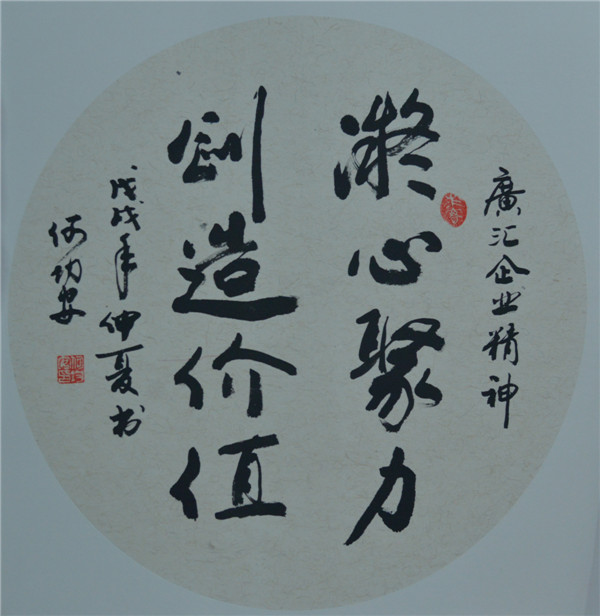 廣汇企业精神
凝心聚力
创造价值
戊戌年仲夏书
何功安